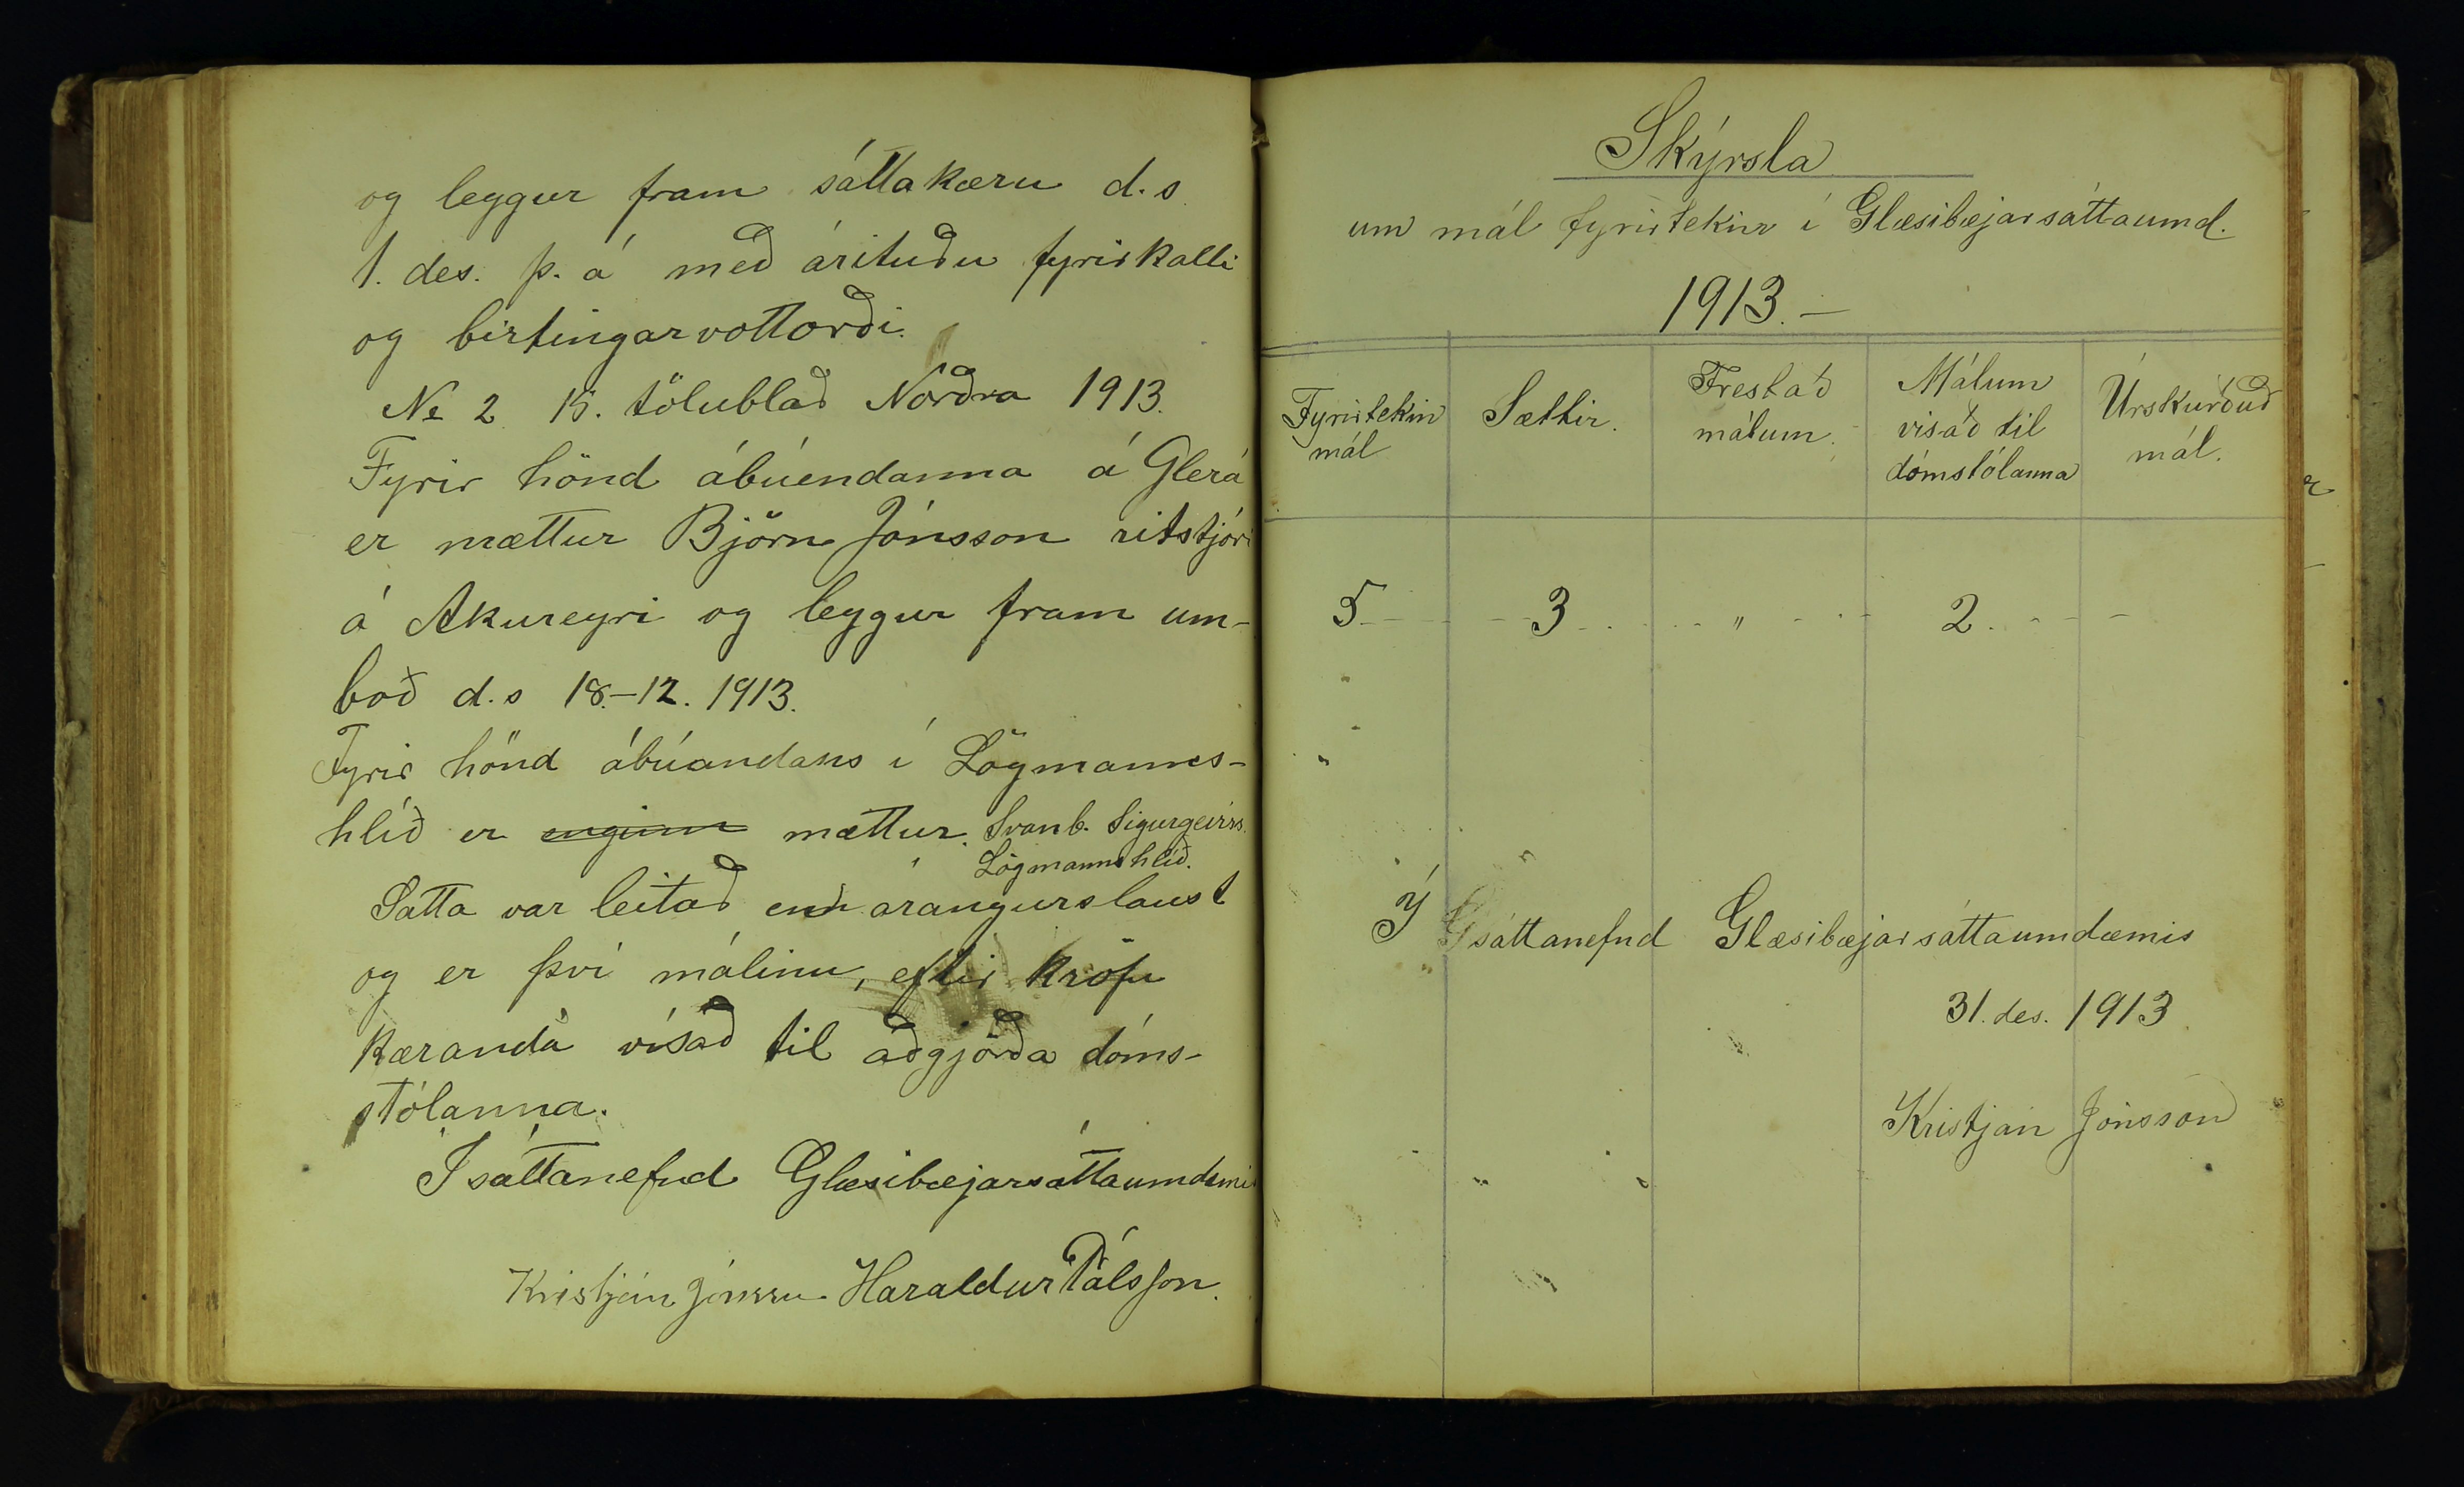 og leggur fram sáttakæru d.s.
1. des. þ. á með árituðu fyrirkalli
og birtingarvottorði.
No 2 15. tölublað Norðra 1913.
Fyrir hönd ábúendanna á Glerá
er mættur Björn Jónsson ritstjóri
á Akureyri og leggur fram um-
boð d.s 18.-12. 1913.
Fyrir hönd ábúandans í Lögmanns-
hlíð er enginn mættur. Svanb. Sigurgeirss.
Lögmannshlíð.
Satta var leitað en árangurslaust
og er því málinu, eftir kröfu
kæranda vísað til aðgjörða dóms-
stólanna.
Í sáttanefnd Glæsibæjarsáttaumdæmis
Kristján Jónsson Haraldur Pálsson.
Skýrsla
um mál fyrirtekin í Glæsibæjarsáttaumd.
1913.-
Fyrirtekin mál
Sættir.
Frestað málum.
Málum vísað til dómstólanna
Úrskurðuð mál.
5 - - 3 - - " - - 2 - - -
Í sáttanefnd Glæsibæjarsáttaumdæmis
31. des. 1913
Kristján Jónsson